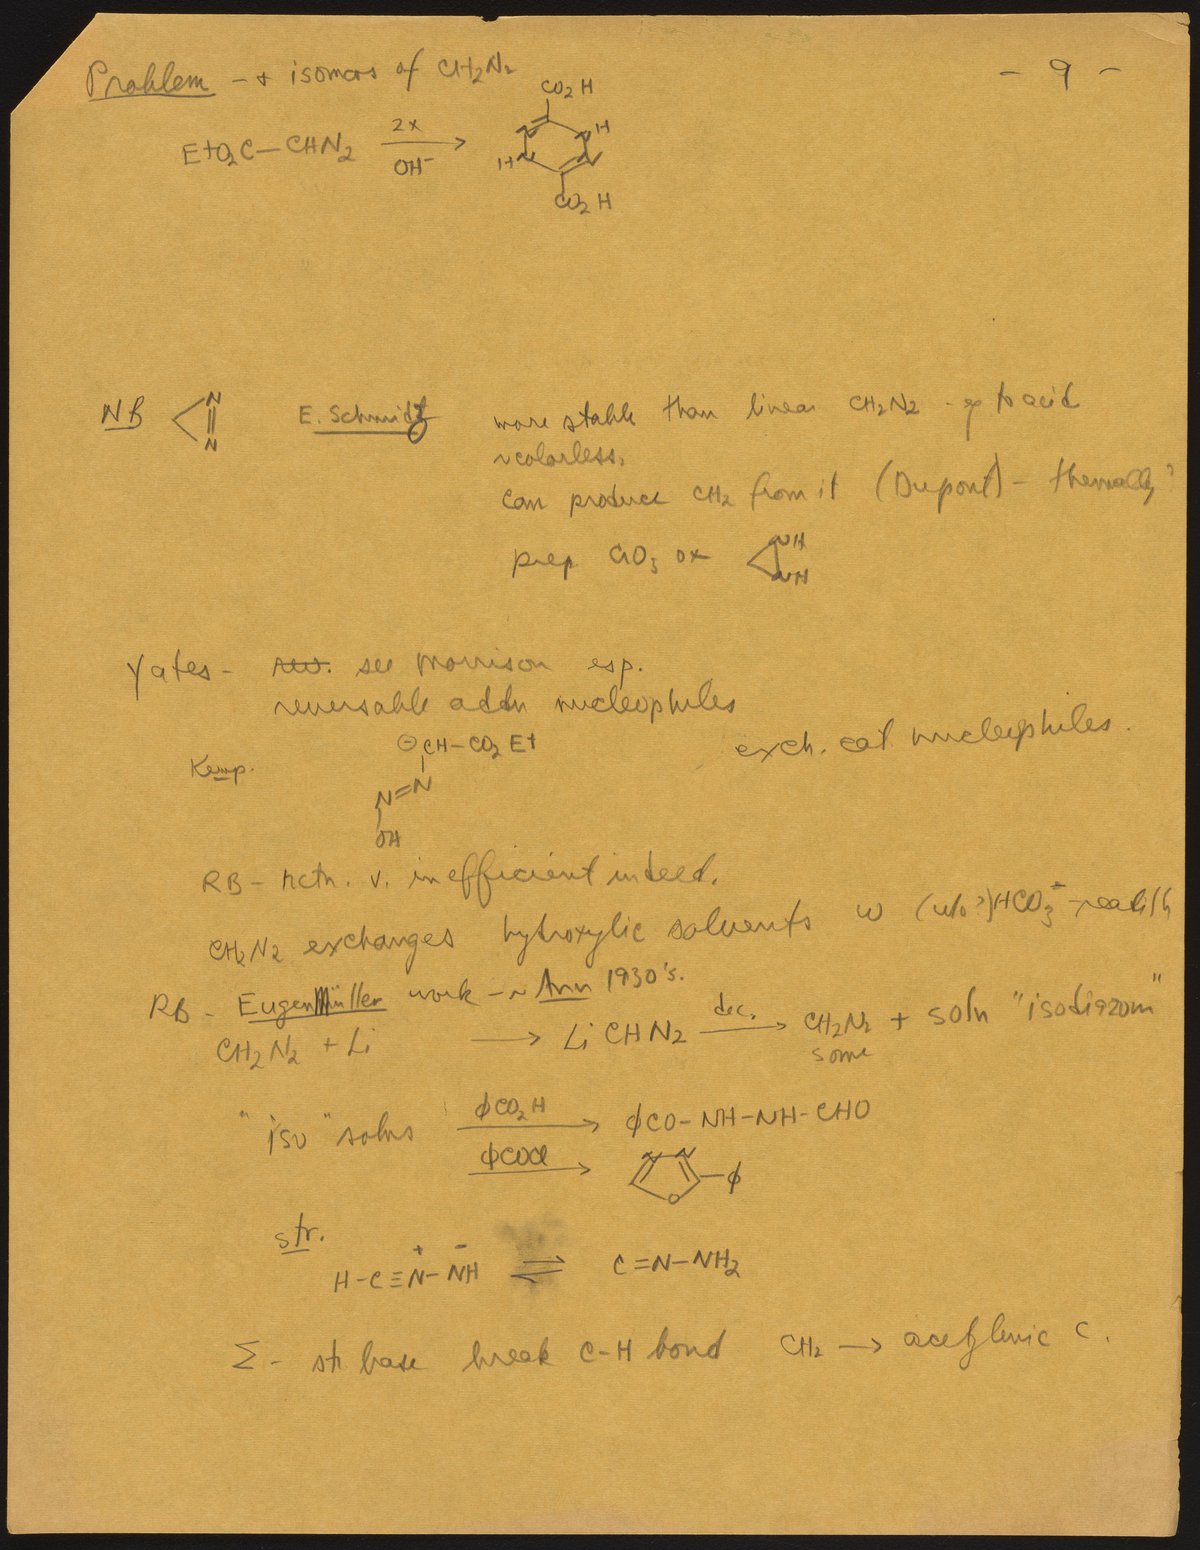 Problem – + isomers of CH2N2
– 9 –
EtO2C–CHN2 2x OH⁻ →
CO2H
N N H
H N N
CO2H
NB N N E. Schmitz more stable than linear CH2N2 - esp to acid
~colorless.
can produce CH2 from it (Dupont) – thermally?
prep CrO3 ox NH NH
Yates – see Morrison esp.
reversable addn nucleophiles
exch. cat nucleophiles.
Kemp. ⊖CH–CO2Et
N=N
OH
RB – rctn. v. inefficient indeed.
CH2N2 exchanges hydroxylic solvents w (w/o?) HCO3⁻
RB – Eugen Müller work – ~ Ann 1930's.
CH2N2 + Li → LiCHN2 dec. → CH2N2 + soln "isodiazom"
some
"iso" solns ϕCO2H → ϕCO–NH–NH–CHO
ϕCOCl → N N O –ϕ
str.
H–C≡N⁺–NH⁻ ⇌ C≡N–NH2
Σ – str base break C–H bond CH2 → acetylenic C.